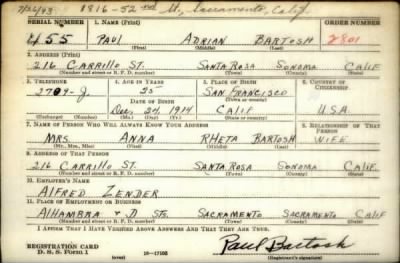 7/26/43 1816-52nd St., Sacramento, Calif.
SERIAL NUMBER 1. NAME (Print) ORDER NUMBER
455 PAUL ADRIAN BARTOSH 2801
(First) (Middle) (Last)
2. ADDRESS (Print)
216 CARRILLO ST. SANTA ROSA SONOMA CALIF
(Number and street or R. F. D. number) (Town) (County) (State)
3. TELEPHONE 4. AGE IN YEARS 5. PLACE OF BIRTH 6. COUNTRY OF CITIZENSHIP
2789-J 25 SAN FRANCISCO
DATE OF BIRTH (Town or county)
Dec 24 1914 CALIF USA
(Exchange) (Number) (Mo.) (Day) (Yr.) (State or country)
7. NAME OF PERSON WHO WILL ALWAYS KNOW YOUR ADDRESS 8. RELATIONSHIP OF THAT PERSON
MRS. ANNA RHETA BARTOSH WIFE
(Mr., Mrs., Miss) (First) (Middle) (Last)
9. ADDRESS OF THAT PERSON
216 CARRILLO ST. SANTA ROSA SONOMA CALIF.
(Number and street or R. F. D. number) (Town) (County) (State)
10. EMPLOYER'S NAME
ALFRED ZENDER
11. PLACE OF EMPLOYMENT OR BUSINESS
ALHAMBRA & D STS. SACRAMENTO SACRAMENTO CALIF
(Number and street or R. F. D. number) (Town) (County) (State)
I AFFIRM THAT I HAVE VERIFIED ABOVE ANSWERS AND THAT THEY ARE TRUE.
REGISTRATION CARD
D. S. S. Form 1 16-17105 Paul Bartosh
(over) (Registrant's signature)